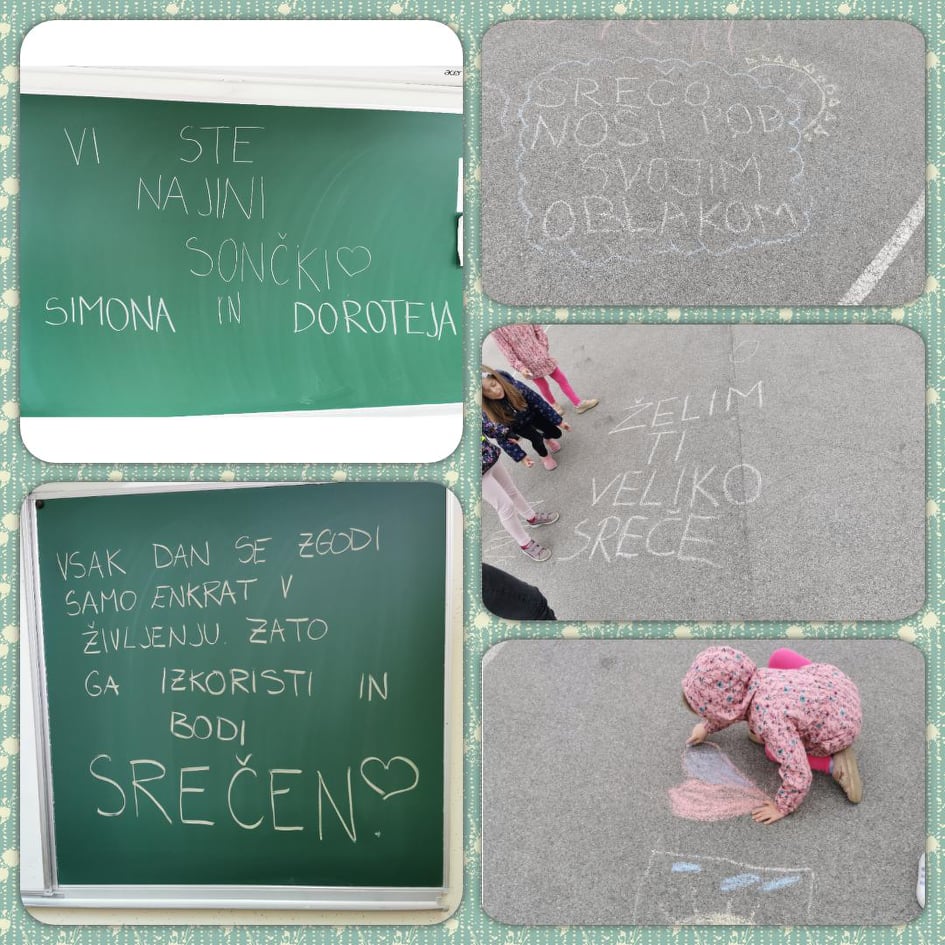 acer
VI STE
NAJINI
SONČKI♡
SIMONA IN DOROTEJA
VSAK DAN SE ZGODI
SAMO ENKRAT V
ŽIVLJENJU. ZATO
GA IZKORISTI IN
BODI
SREČEN♡
SREČO
NOSI POD
SVOJIM
OBLAKOM
ŽELIM
TI
VELIKO
SREČE